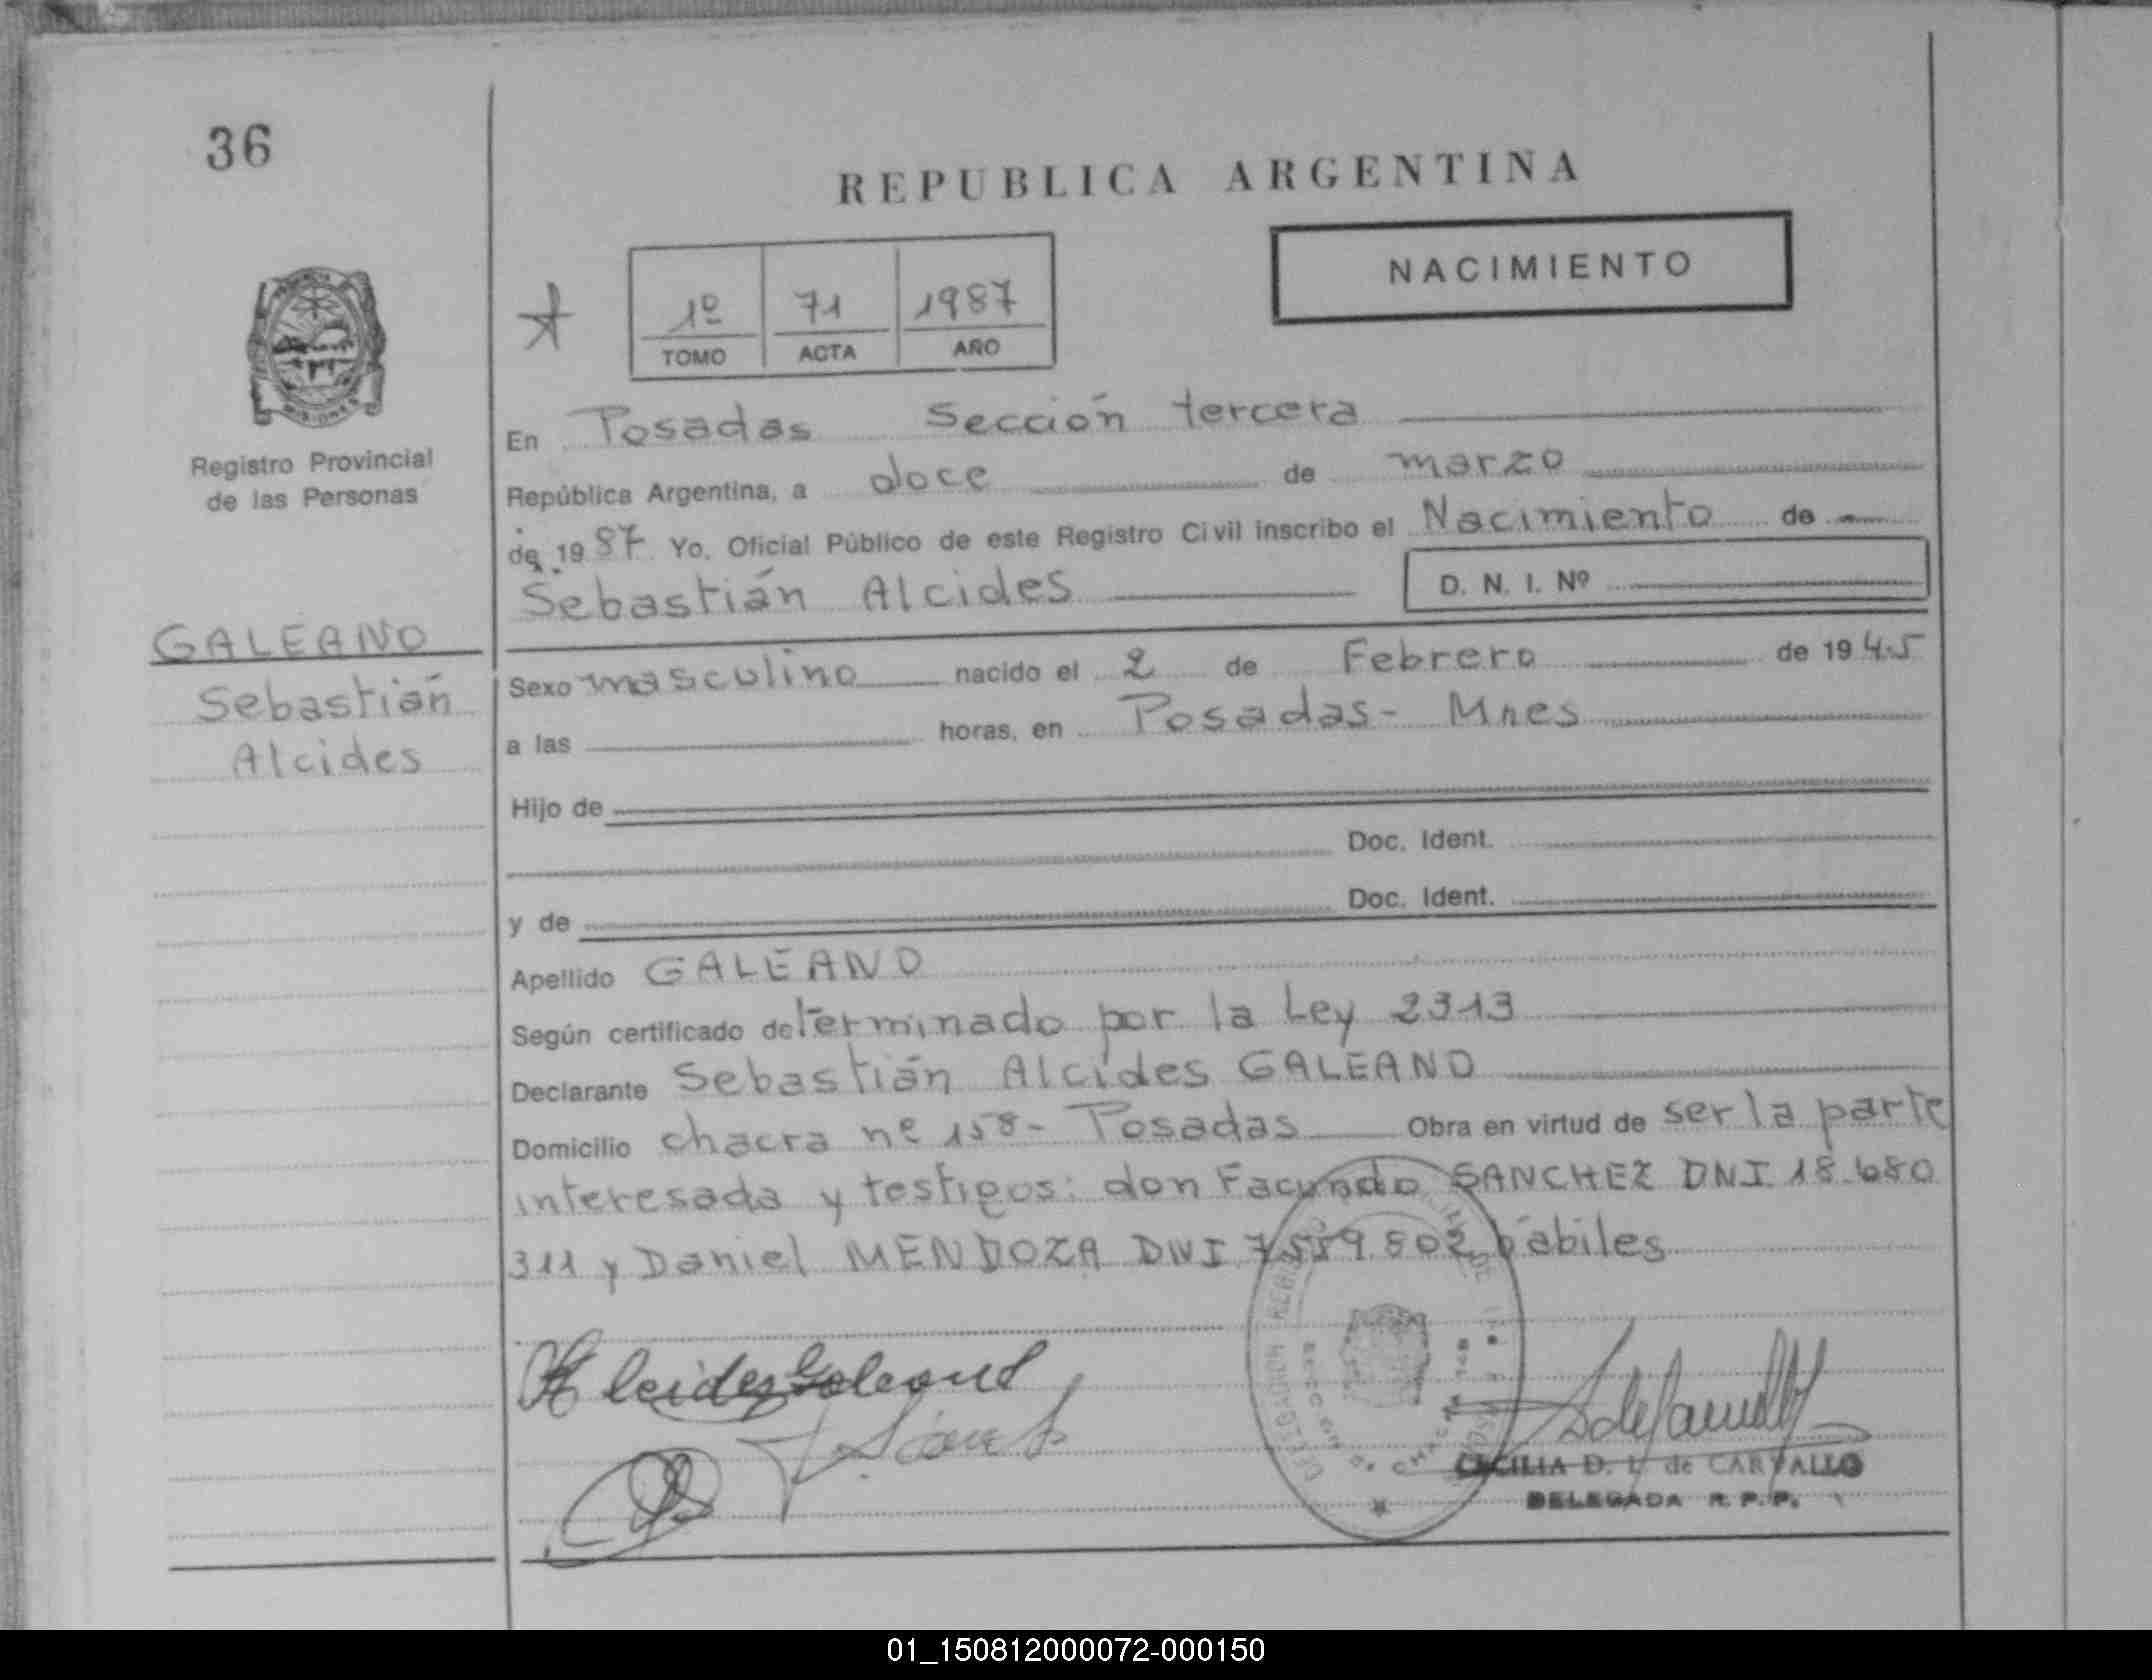 36
REPUBLICA ARGENTINA
NACIMIENTO
1º 71 1987
TOMO ACTA AÑO
Registro Provincial
de las Personas
En Posadas Sección tercera
República Argentina, a doce de marzo
de 1987 Yo. Oficial Público de este Registro Civil inscribo el Nacimiento de
Sebastián Alcides
D. N. I. Nº
GALEANO
Sebastián
Alcides
Sexo masculino nacido el 2 de Febrero de 1945
a las horas, en Posadas- Mnes
Hijo de
Doc. Ident.
y de Doc. Ident.
Apellido GALEANO
Según certificado determinado por la Ley 2313
Declarante Sebastián Alcides GALEANO
Domicilio chacra nº 158- Posadas Obra en virtud de ser la parte
interesada y testigos: don Facundo SANCHEZ DNI 18.680
311 y Daniel MENDOZA DNI 7559.802 hábiles
Alcides Galeano
CECILIA D. L. de CARVALLO
DELEGADA R. P. P.
01_150812000072-000150